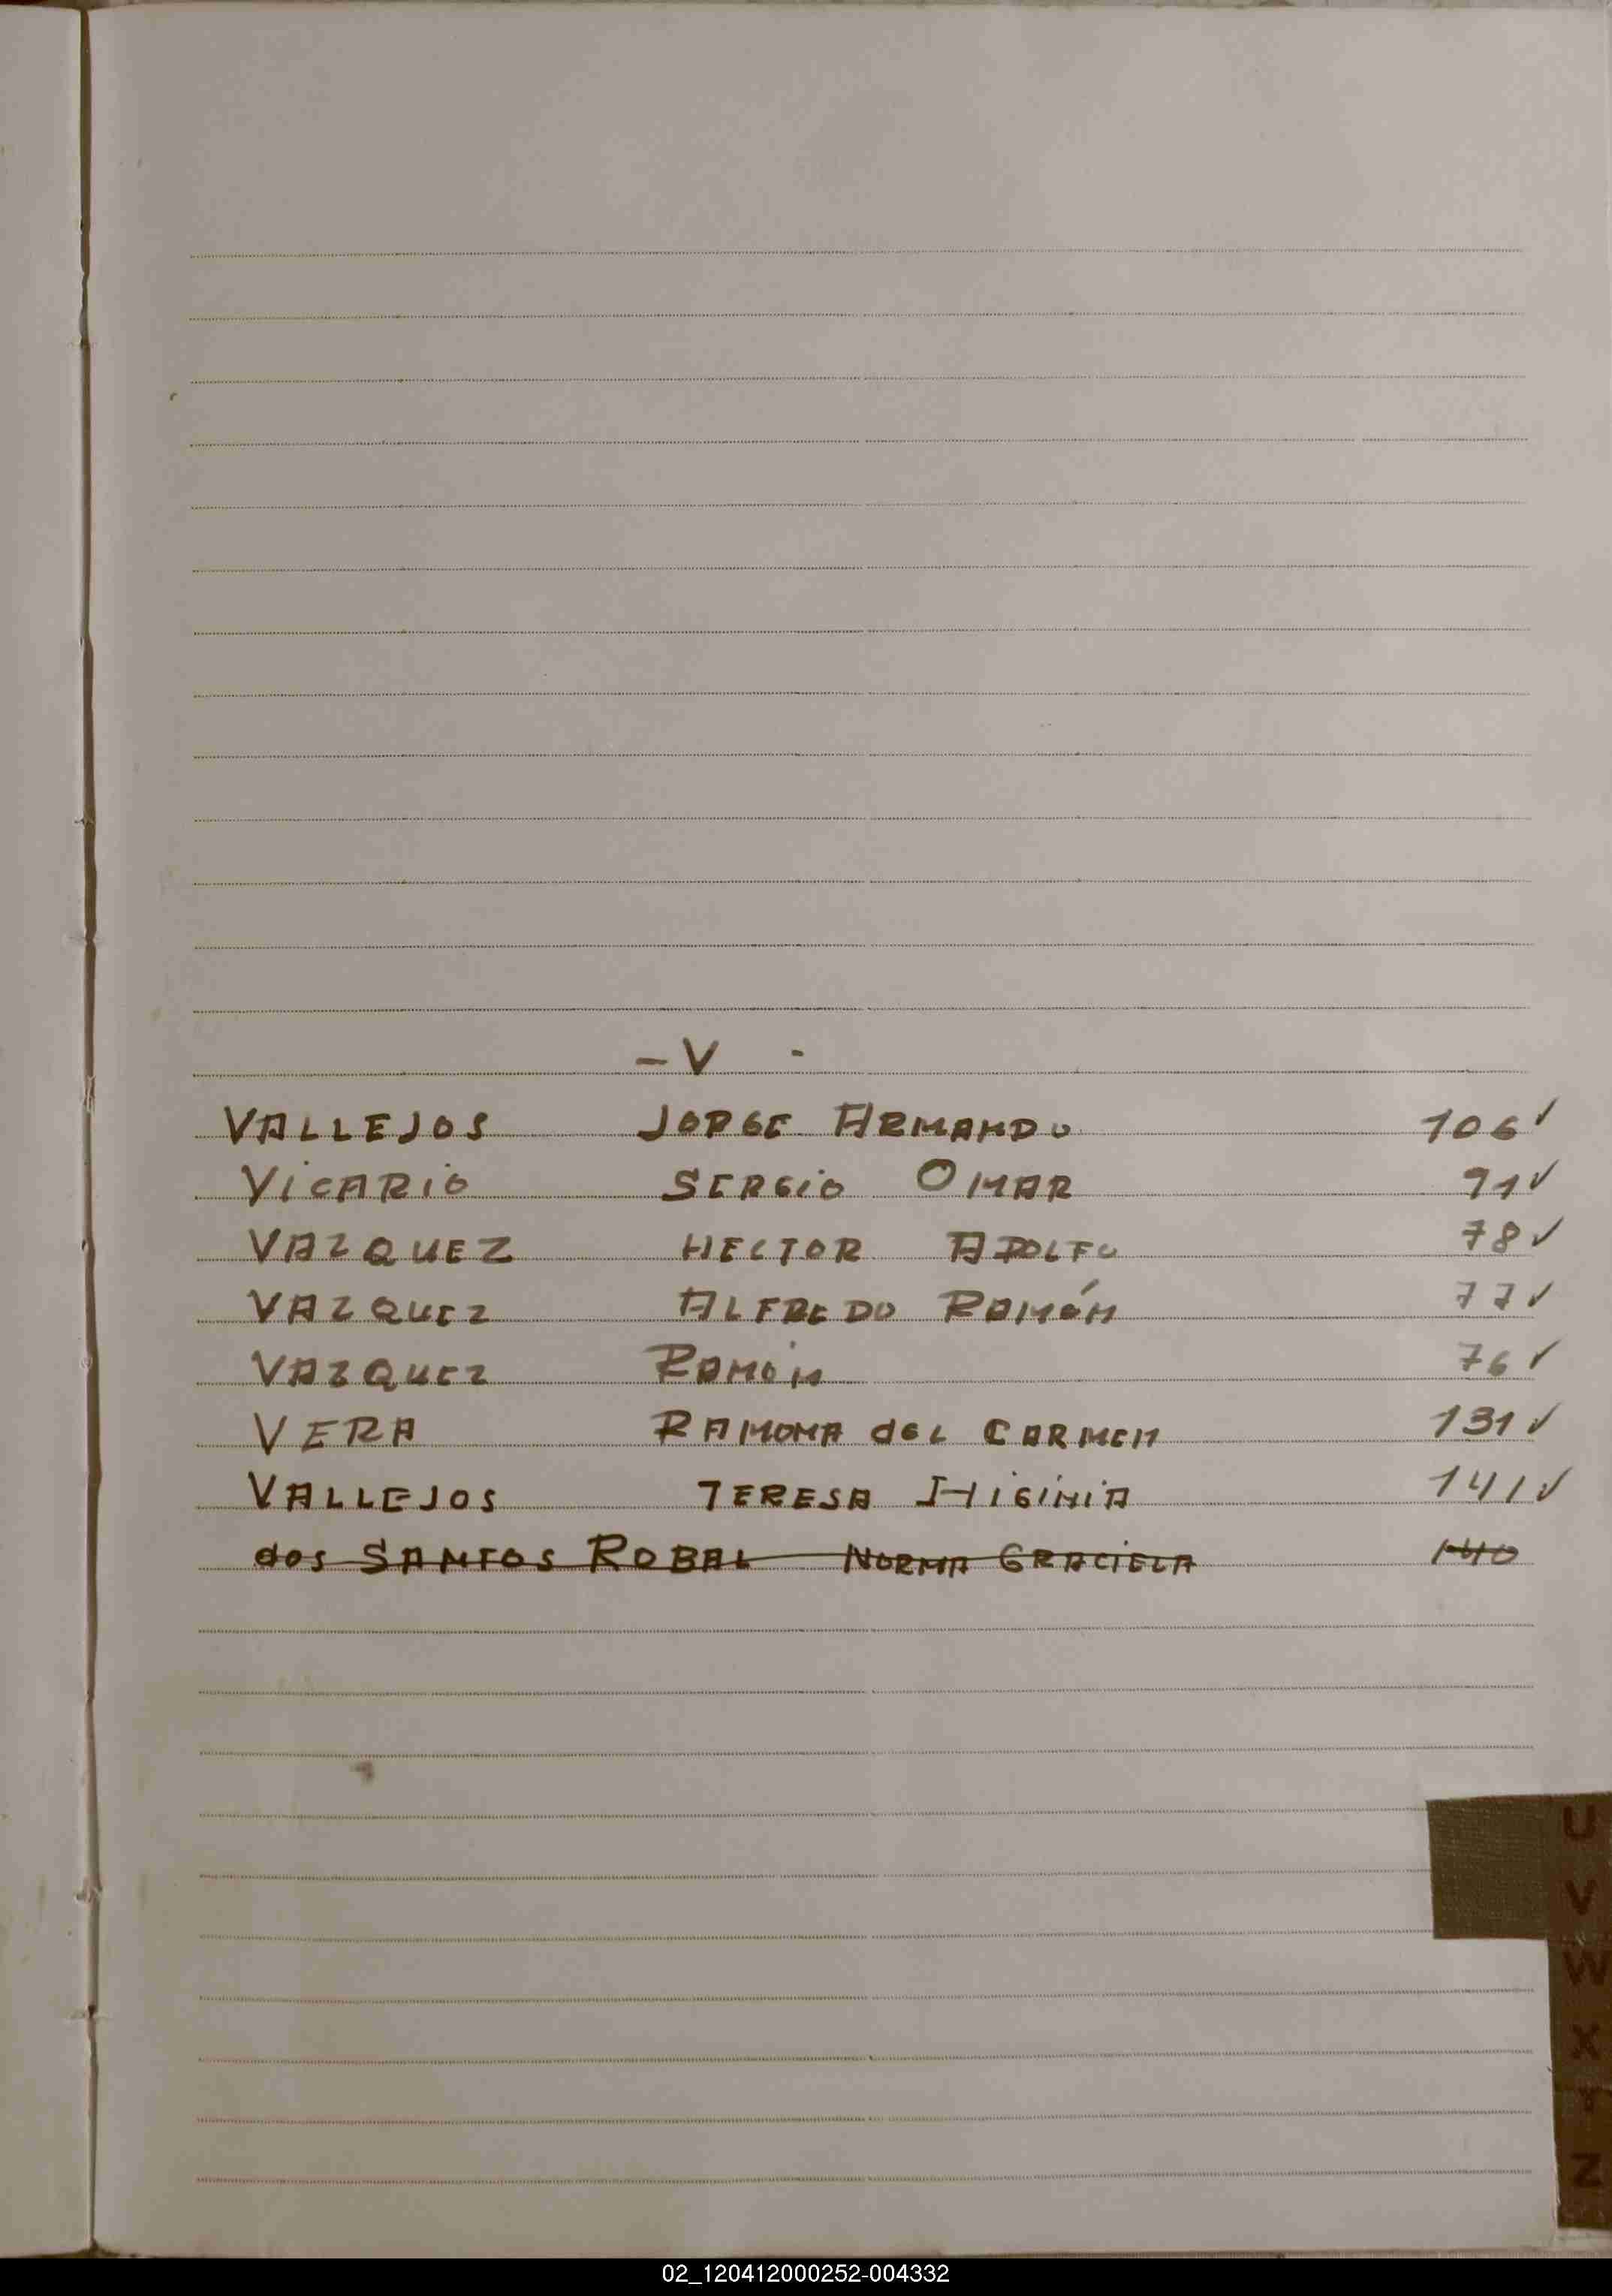 - V -
VALLEJOS JORGE ARMANDO 106 ✓
VICARIO SERGIO OMAR 91 ✓
VAZQUEZ HECTOR ADOLFO 78 ✓
VAZQUEZ ALFREDO RAMÓN 77 ✓
VAZQUEZ RAMÓN 76 ✓
VERA RAMONA del CARMEN 131 ✓
VALLEJOS TERESA HIGINIA 141 ✓
dos SANTOS ROBAL NORMA GRACIELA 140
U
V
W
X
Y
Z
02_120412000252-004332